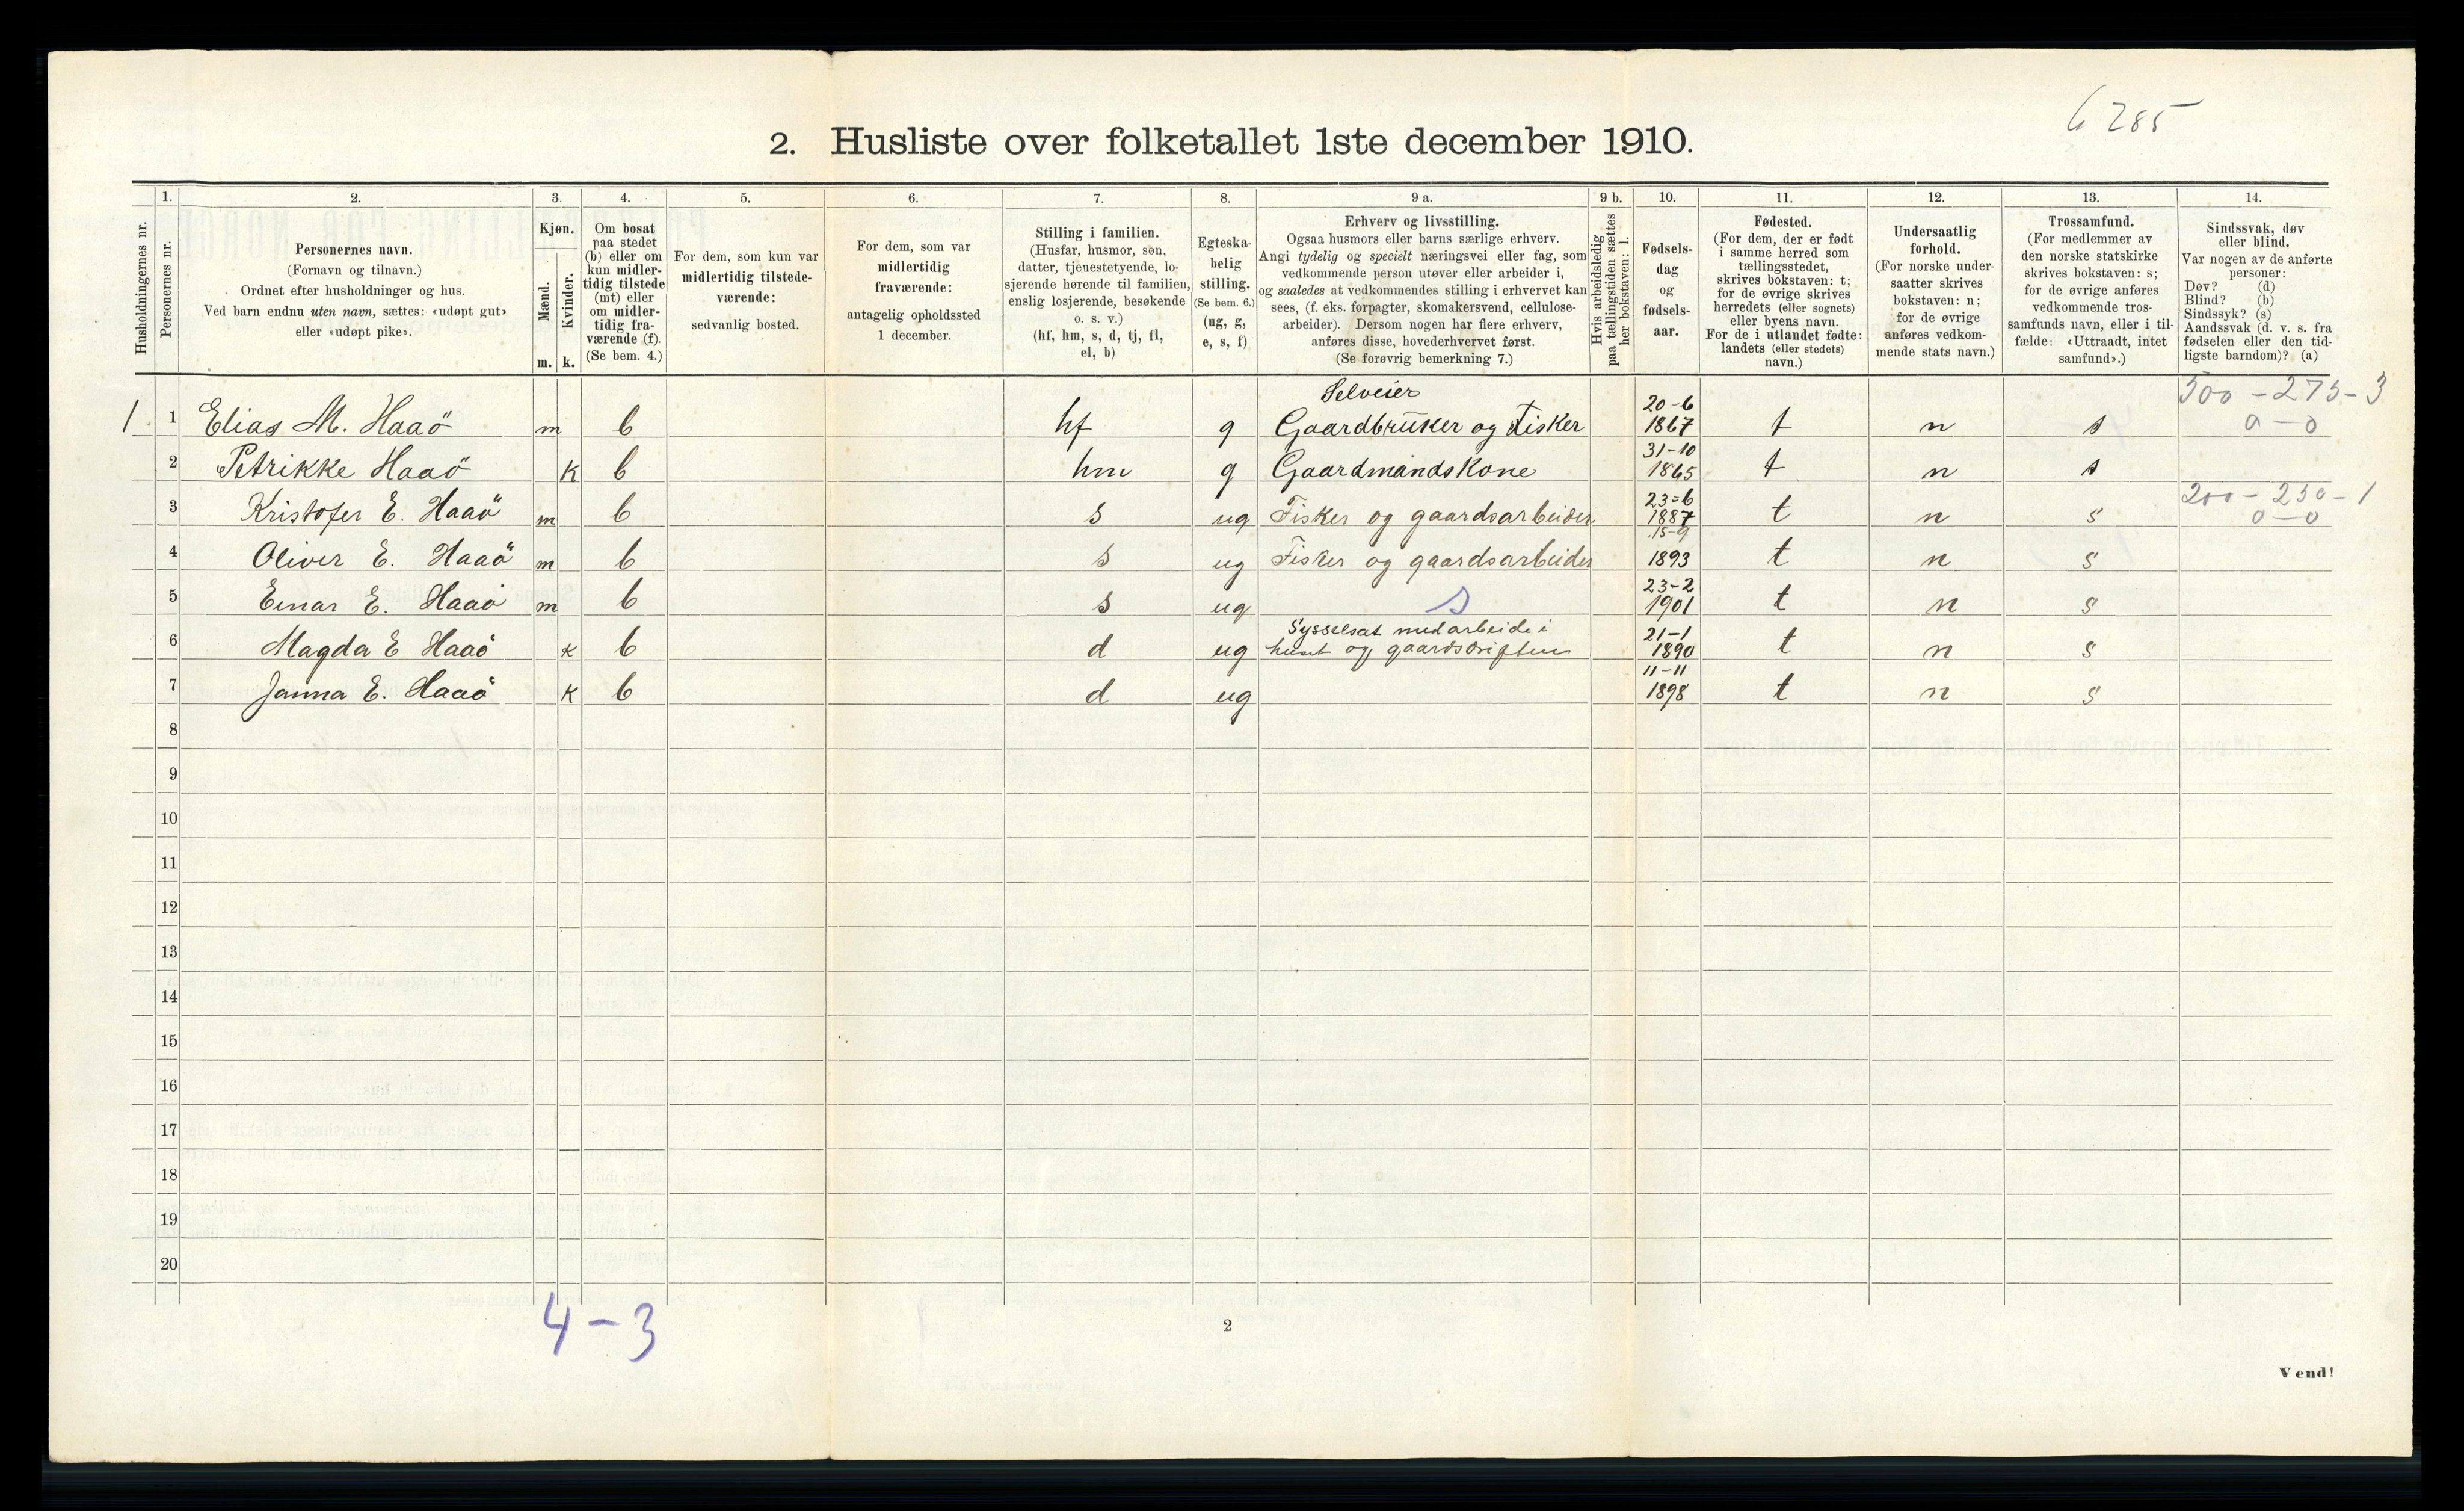 6 285
2. Husliste over folketallet 1ste december 1910.
Husholdningernes nr.
1. Personernes nr.
2. Personernes navn.
(Fornavn og tilnavn.)
Ordnet efter husholdninger og hus.
Ved barn endnu uten navn, sættes: «udøpt gut»
eller «udøpt pike».
3. Kjøn.
Mænd. m.
Kvinder. k.
4. Om bosat
paa stedet
(b) eller om
kun midler-
tidig tilstede
(mt) eller
om midler-
tidig fra-
værende (f).
(Se bem. 4.)
5. For dem, som kun var
midlertidig tilstede-
værende:
sedvanlig bosted.
6. For dem, som var
midlertidig
fraværende:
antagelig opholdssted
1 december.
7. Stilling i familien.
(Husfar, husmor, søn,
datter, tjenestetyende, lo-
sjerende hørende til familien,
enslig losjerende, besøkende
o. s. v.)
(hf, hm, s, d, tj, fl,
el, b)
8. Egteska-
belig
stilling.
(Se bem. 6.)
(ug, g,
e, s, f)
9 a. Erhverv og livsstilling.
Ogsaa husmors eller barns særlige erhverv.
Angi tydelig og specielt næringsvei eller fag, som
vedkommende person utøver eller arbeider i,
og saaledes at vedkommendes stilling i erhvervet kan
sees, (f. eks. forpagter, skomakersvend, cellulose-
arbeider). Dersom nogen har flere erhverv,
anføres disse, hovederhvervet først.
(Se forøvrig bemerkning 7.)
9 b. Hvis arbeidsledig
paa tællingstiden sættes
her bokstaven: l.
10. Fødsels-
dag
og
fødsels-
aar.
11. Fødested.
(For dem, der er født
i samme herred som
tællingsstedet,
skrives bokstaven: t;
for de øvrige skrives
herredets (eller sognets)
eller byens navn.
For de i utlandet fødte:
landets (eller stedets)
navn.)
12. Undersaatlig
forhold.
(For norske under-
saatter skrives
bokstaven: n;
for de øvrige
anføres vedkom-
mende stats navn.)
13. Trossamfund.
(For medlemmer av
den norske statskirke
skrives bokstaven: s;
for de øvrige anføres
vedkommende tros-
samfunds navn, eller i til-
fælde: «Uttraadt, intet
samfund».)
14. Sindssvak, døv
eller blind.
Var nogen av de anførte
personer:
Døv? (d)
Blind? (b)
Sindssyk? (s)
Aandssvak (d. v. s. fra
fødselen eller den tid-
ligste barndom)? (a)
Selveier 20-6 500-275-3
1 1 Elias M. Haaö m b hf g Gaardbrüker og Fisker 1867 t n s 0-0
31-10
2 Petrikke Haaö k b hm g Gaardmandskone 1865 t n s
23-6 200-250-1
3 Kristofer E. Haaö m b s ug Fisker og gaardsarbeider 1887 t n s 0-0
15-9
4 Oliver E. Haaö m b s ug Fisker og gaardsarbeider 1893 t n s
23-2
5 Einar E. Haaö m b s ug s 1901 t n s
Sysselsat med arbeide i 21-1
6 Magda E Haaö k b d ug huset og gaardsdriften 1890 t n s
11-11
7 Janna E. Haaö k b d ug 1898 t n s
8
9
10
11
12
13
14
15
16
17
18
19
20
4-3
2
Vend!